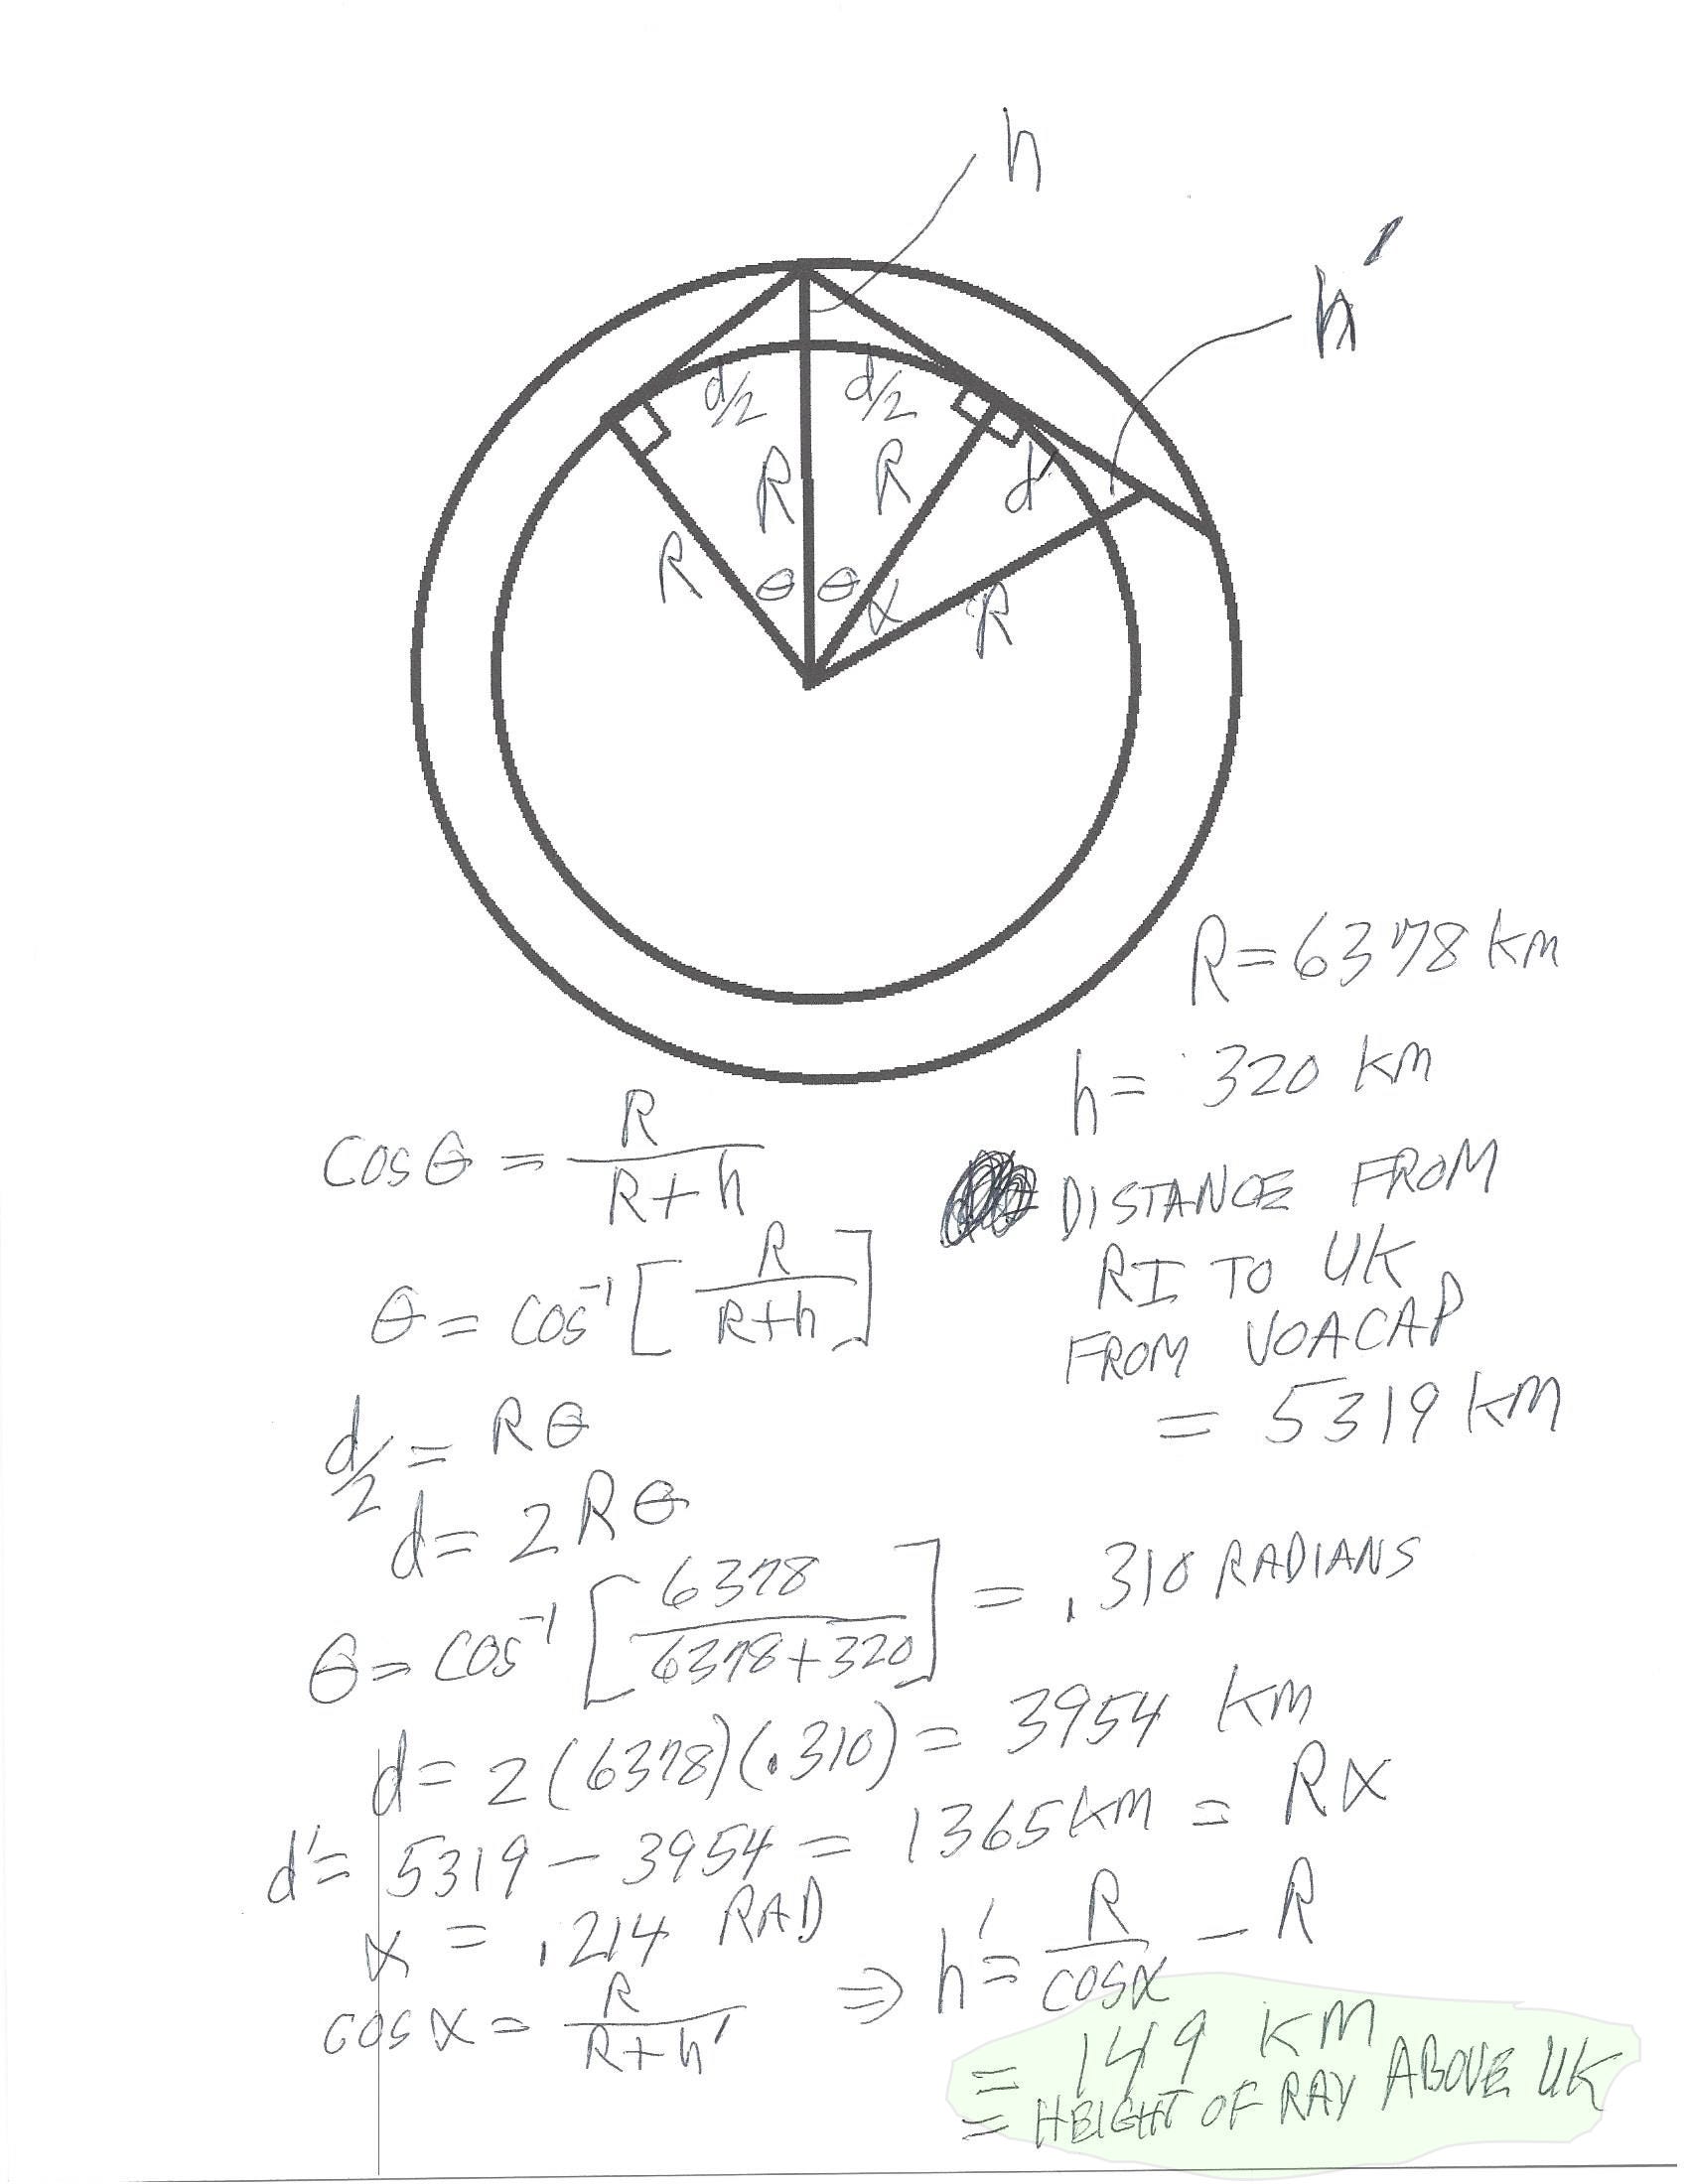 h
h'
d/2 d/2
R R d'
R θ θ α R
R = 6378 KM
h = 320 KM
COS θ = R / (R + h)
DISTANCE FROM
RI TO UK
FROM VOACAP
= 5319 KM
θ = COS⁻¹ [R / (R+h)]
d/2 = Rθ
d = 2Rθ
θ = COS⁻¹ [6378 / (6378+320)] = .310 RADIANS
d = 2(6378)(.310) = 3954 KM
d' = 5319 - 3954 = 1365 KM = Rα
α = .214 RAD
COS α = R / (R + h') ⇒ h' = R / COS α - R
= 149 KM
= HEIGHT OF RAY ABOVE UK